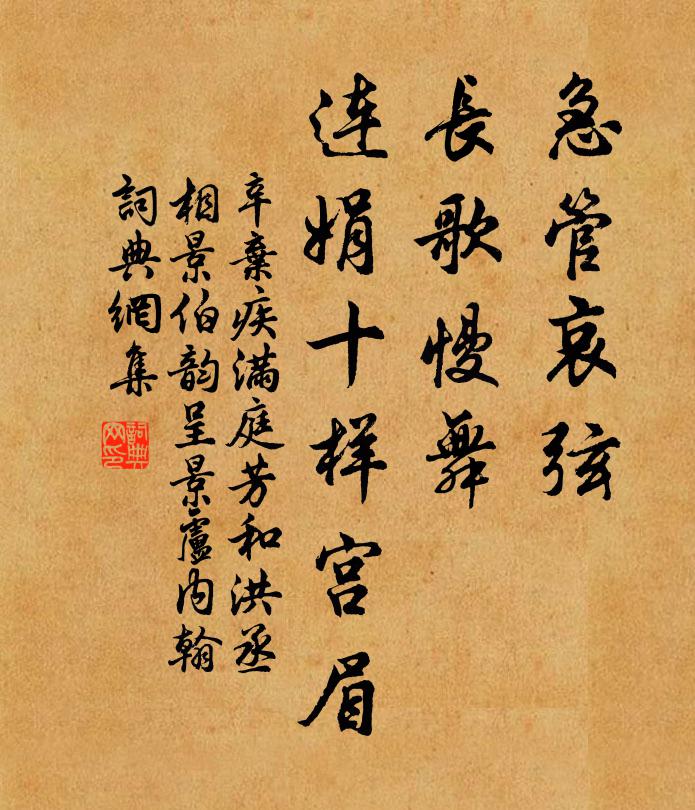 急管哀弦
長歌慢舞
連娟十样宫眉
辛棄疾滿庭芳和洪丞
相景伯韵呈景盧内翰
詞典網集
詞典
网印